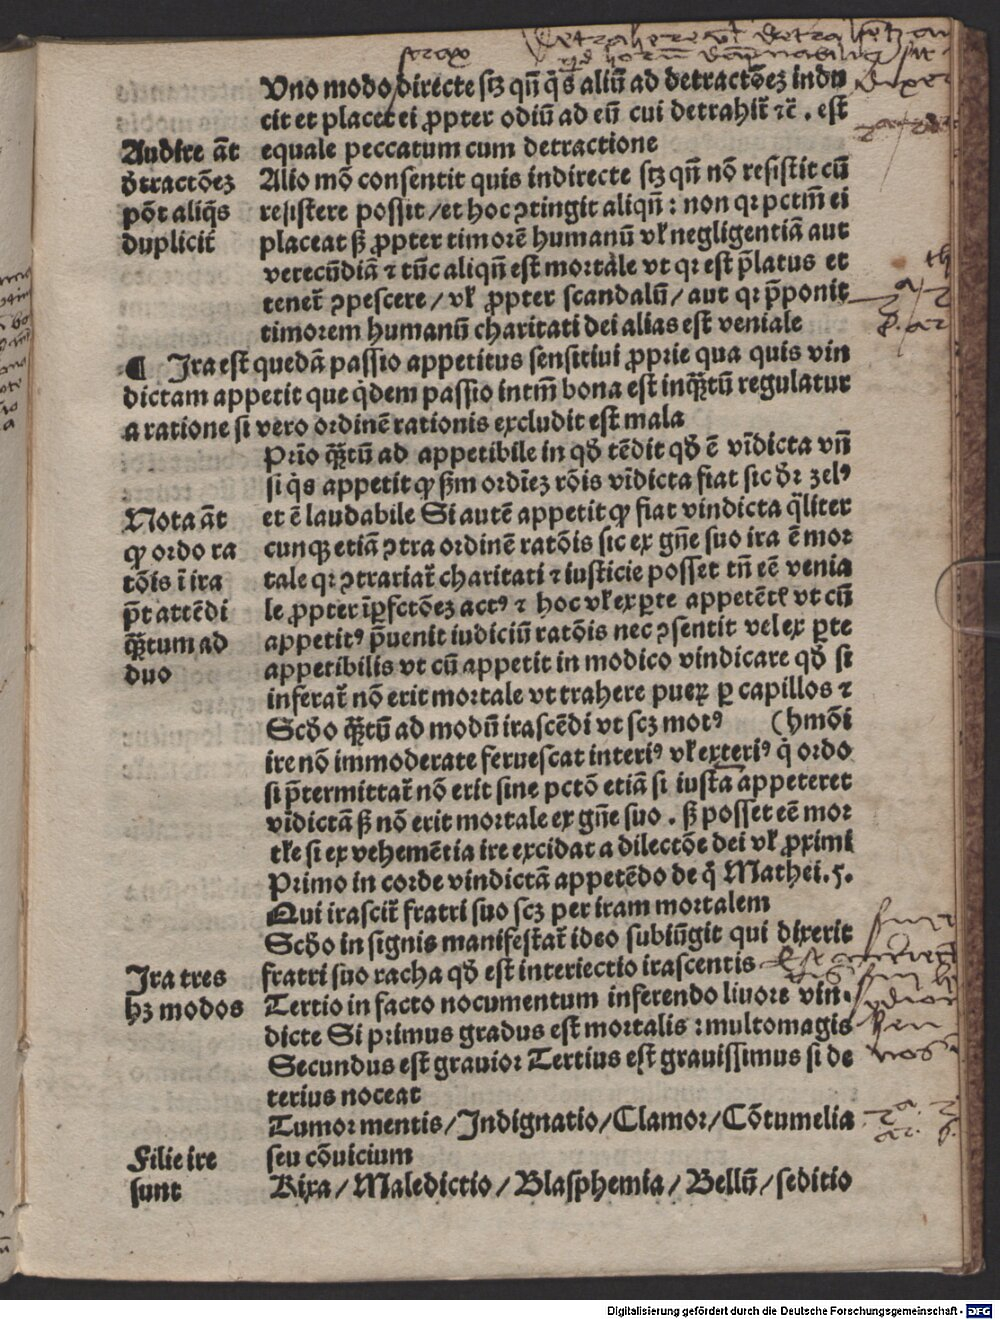 Uno modo directe sꝫ qn̄ q̇s aliū ad detractōeꝫ indu
cit et placet ei ꝓpter odiū ad eū cui detrahit᷑ ⁊c̄ . est
equale peccatum cum detractione
Audire āt
ď tractōeꝫ
pōt aliq̇s
duplicit᷑
Alio mō consentit quis indirecte sꝫ qn̄ nō resistit cū
resistere possit / et hoc ꝯtingit aliqn̄ : non qꝛ pctm̄ ei
placeat sꝫ ꝓpter timorē humanū vl̓ negligentiā aut
verecūdiā ⁊ tūc aliqn̄ est mortale vt qꝛ est p̄latus et
tenet᷑ ꝯpescere / vl̓ ꝓpter scandalū / aut qꝛ p̄ponit
timorem humanū charitati dei alias est veniale
¶ Ira est quedā passio appetitus sensitiui ꝓprie qua quis vin
dictam appetit que q̇dem passio intm̄ bona est inq̄ꝫtū regulatur
a ratione si vero ordinē rationis excludit est mala
Prīo q̄ꝫtū ad appetibile in qď tēdit qď ē vīdicta vn̄
si q̇s appetit ꝙ ẜm ordīeꝫ rōis vīdicta fiat sic dꝛ zelꝰ
et ē laudabile Si autē appetit ꝙ fiat vindicta q̄liter
cunqꝫ etiā ꝯtra ordinē ratōis sic ex gn̄e suo ira ē mor
tale qꝛ ꝯtrariat᷑ charitati ⁊ iusticie posset tn̄ eē venia
le ꝓpter īꝑfctōeꝫ actꝰ ⁊ hoc vl̓ ex ꝑte appetētꝭ vt cū
appetitꝰ p̄uenit iudiciū ratōis nec ꝯsentit vel ex ꝑte
appetibilis vt cū appetit in modico vindicare qď si
inferat᷑ nō erit mortale vt trahere pueꝝ ꝑ capillos ⁊
Nota āt
ꝙ ordo ra
tōis ī ira
p̄t attēdi
q̄ꝫtum ad
duo
Scďo q̄ꝫtū ad modū irascēdi vt scꝫ motꝰ (hmōi
ire nō immoderate feruescat interiꝰ vl̓ exteriꝰ q̇ ordo
si p̄termittat᷑ nō erit sine pctō etiā si iusta appeteret
vīdictā sꝫ nō erit mortale ex gn̄e suo . sꝫ posset eē mor
tl̓e si ex vehemētia ire excidat a dilectōe dei vl̓ ꝓximi
Primo in corde vindictā appetēdo de q̇ Mathei .5.
Qui irascit᷑ fratri suo scꝫ per iram mortalem
Scďo in signis manifestat᷑ ideo subiūgit qui dixerit
fratri suo racha qď est interiectio irascentis
Ira tres
hꝫ modos
Tertio in facto nocumentum inferendo liuore vin-
dicte Si primus gradus est mortalis : multomagis
Secundus est grauior Tertius est grauissimus si de
terius noceat
Tumor mentis / Indignatio / Clamor / Cōtumelia
seu cōuicium
Filie ire
sunt
Rixa / Maledictio / Blasphemia / Bellū / seditio
Digitalisierung gefördert durch die Deutsche Forschungsgemeinschaft - DFG